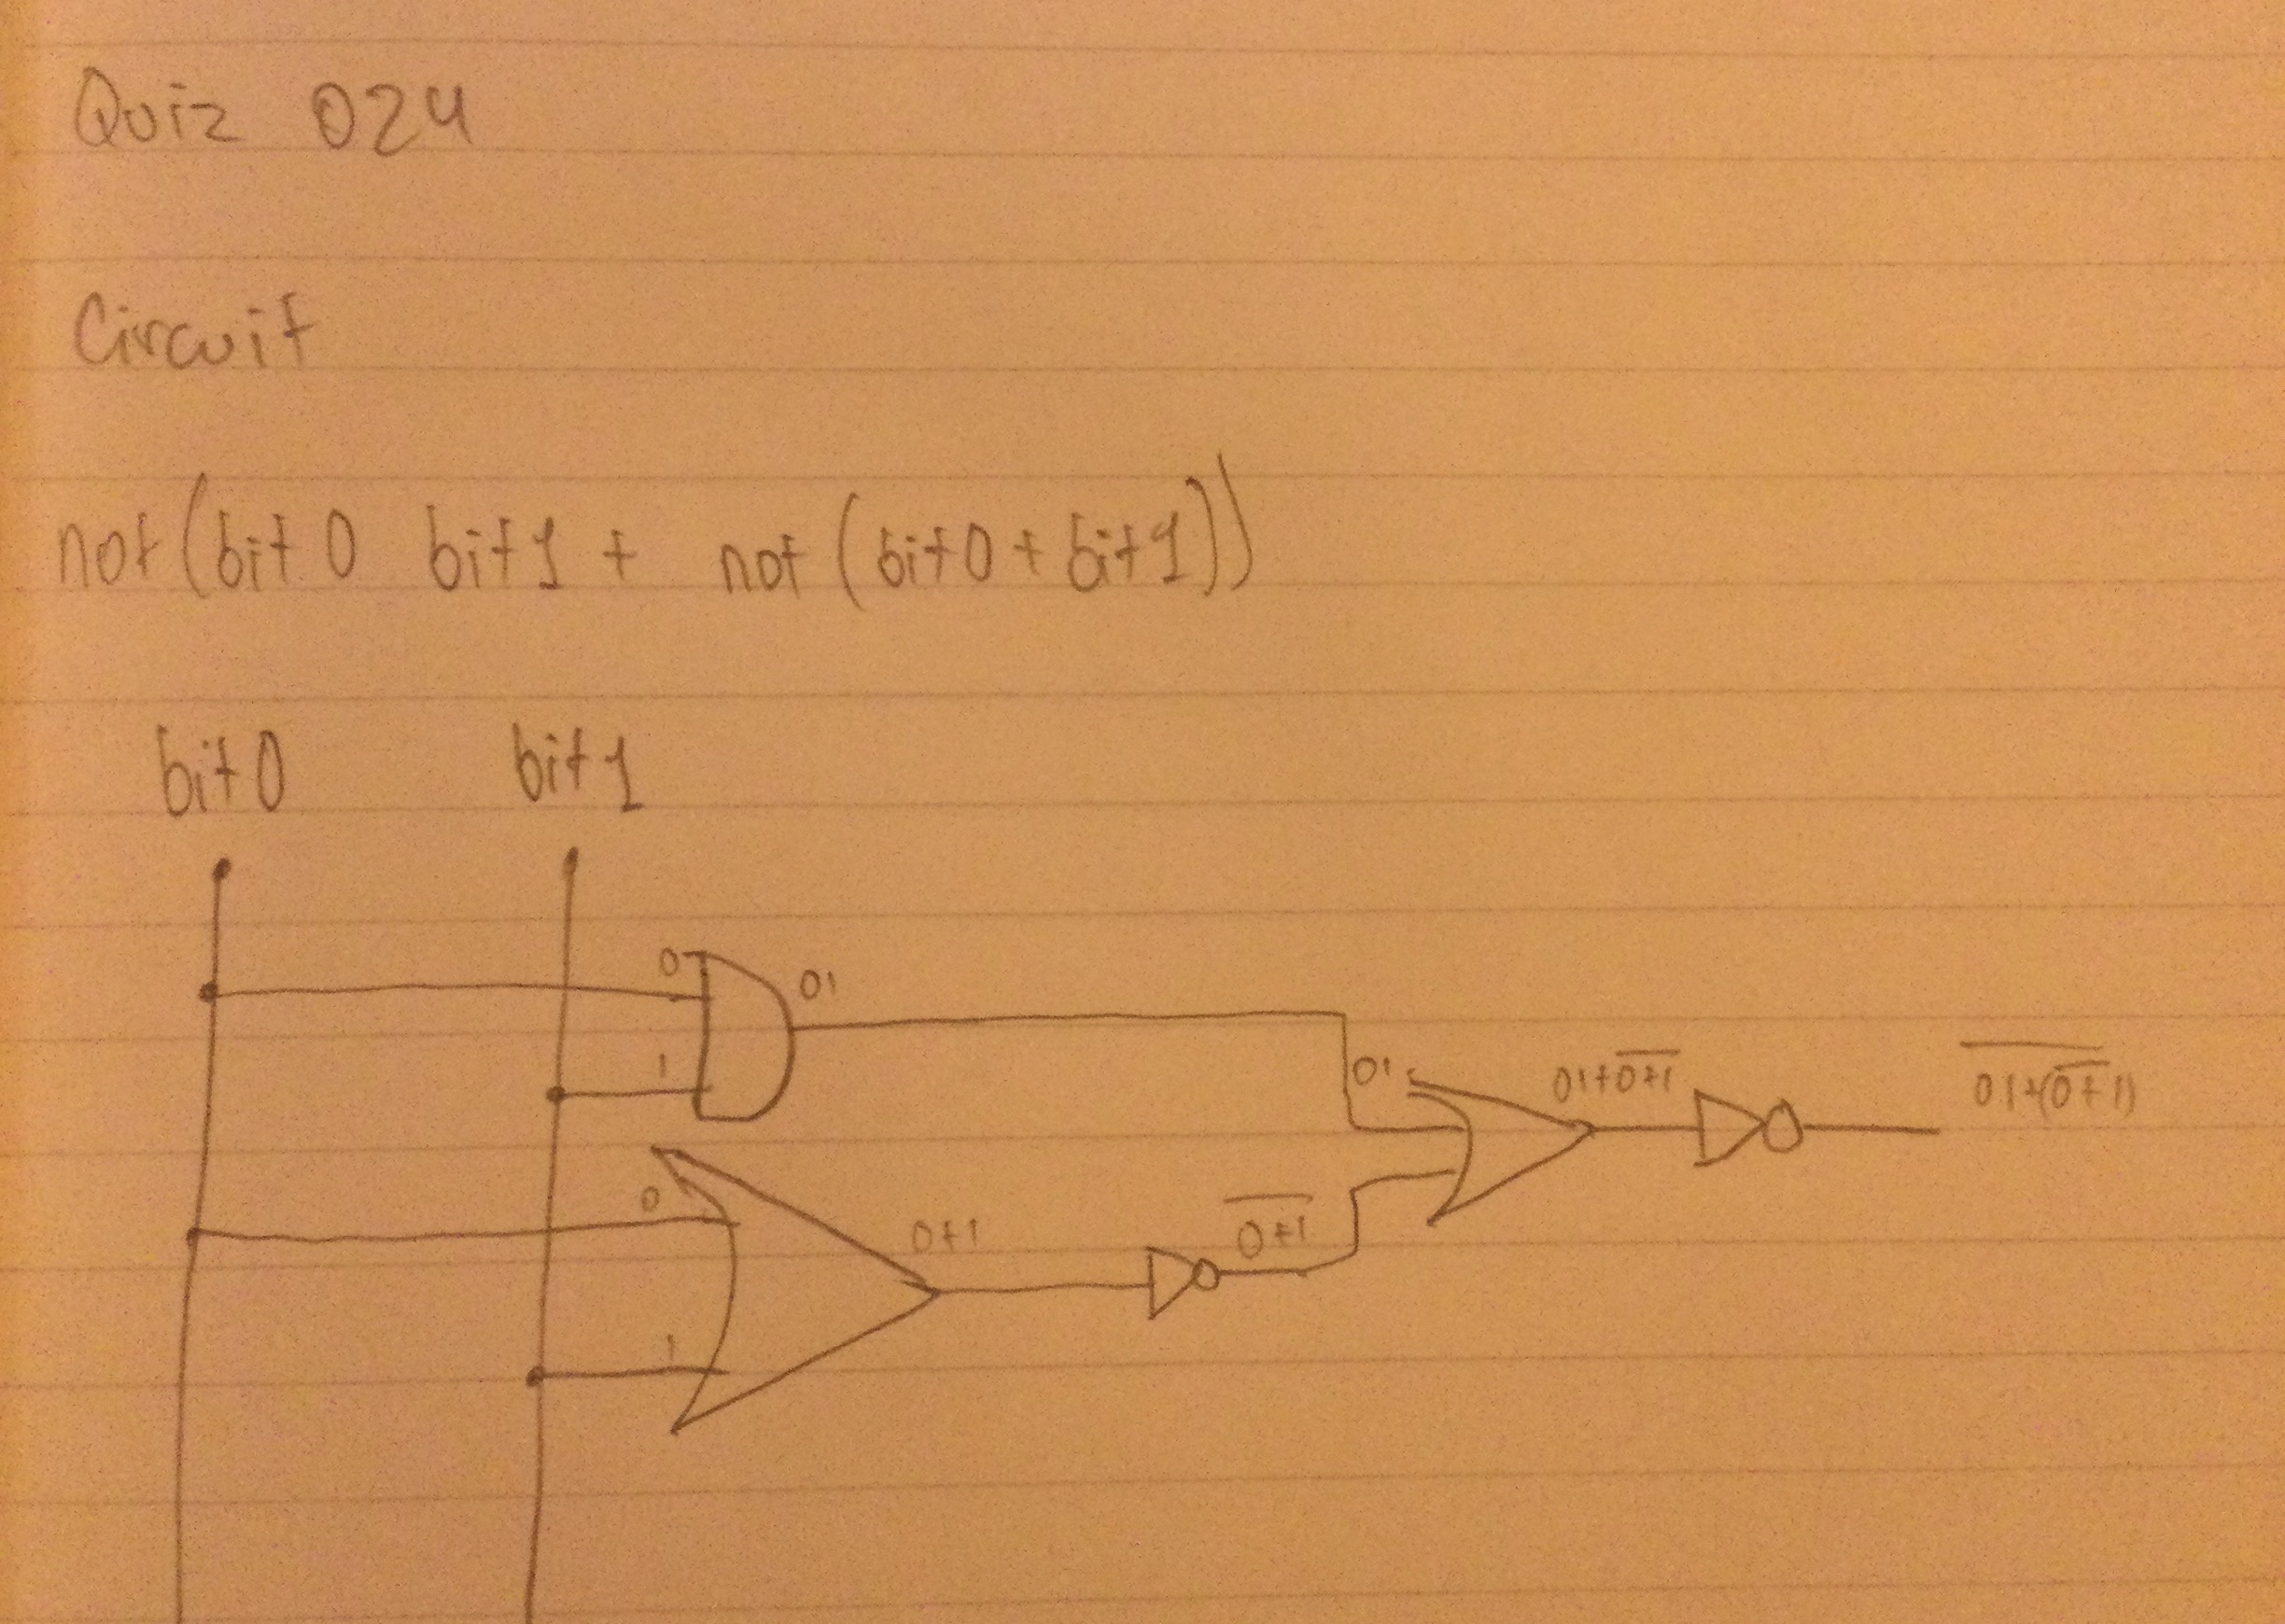 Quiz 024
Circuit
not(bit0 bit1 + not(bit0+bit1))
bit0 bit1
0 01
1
01 01+0̅+̅1̅ 0̅1̅+̅(̅0̅+̅1̅)̅
0 0+1 0̅+̅1̅
1